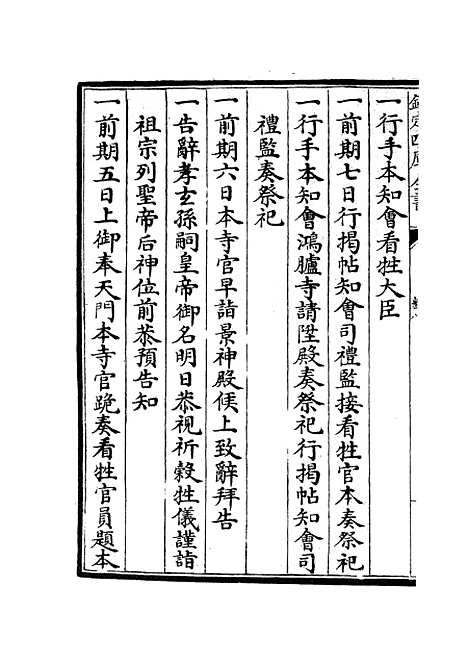 欽定四庫全書
一行手本知會看牲大臣
一前期七日行揭帖知會司禮監接看牲官本奏祭祀
一行手本知會鴻臚寺請陞殿奏祭祀行揭帖知會司
禮監奏祭祀
一前期六日本寺官早詣景神殿候上致辭拜告
一告辭孝玄孫嗣皇帝御名明日恭視祈穀牲儀謹詣
祖宗列聖帝后神位前恭預告知
一前期五日上御奉天門本寺官跪奏看牲官員題本